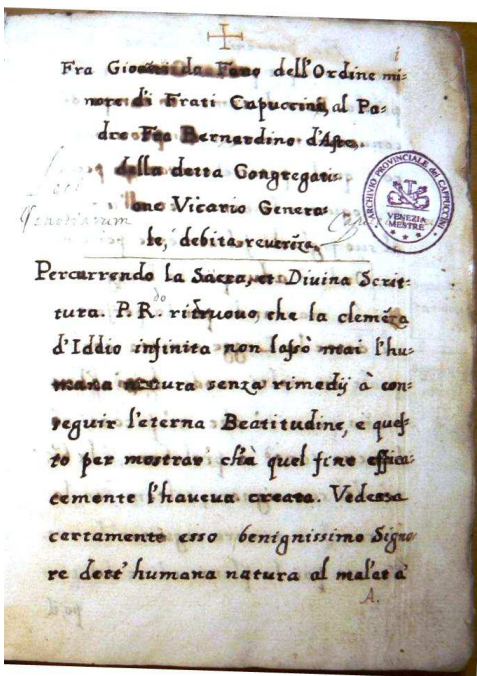 Fra Giovani da Fano dell'Ordine mi=
nore di Frati Capuccini, al Pa=
dre Fra Bernardino d'Aste,
della detta Congregati=
one Vicario Genera=
le, debita reverẽza.
Locus
ARCHIVIO PROVINCIALE dei CAPPUCCINI
VENEZIA
MESTRE
Percurrendo la Sacra, et Divina Scrit=
tura. P. R.do ritruovo, che la clemẽza
d'Iddio infinita non lassò mai l'hu=
mana natura senza rimedij à con=
seguir l'eterna Beatitudine, e ques=
to per mostrar ch'à quel fine effica=
cemente l'haveva creata. Vedeva
certamente esso benignissimo Signo=
re dett' humana natura al mal'atà
A.